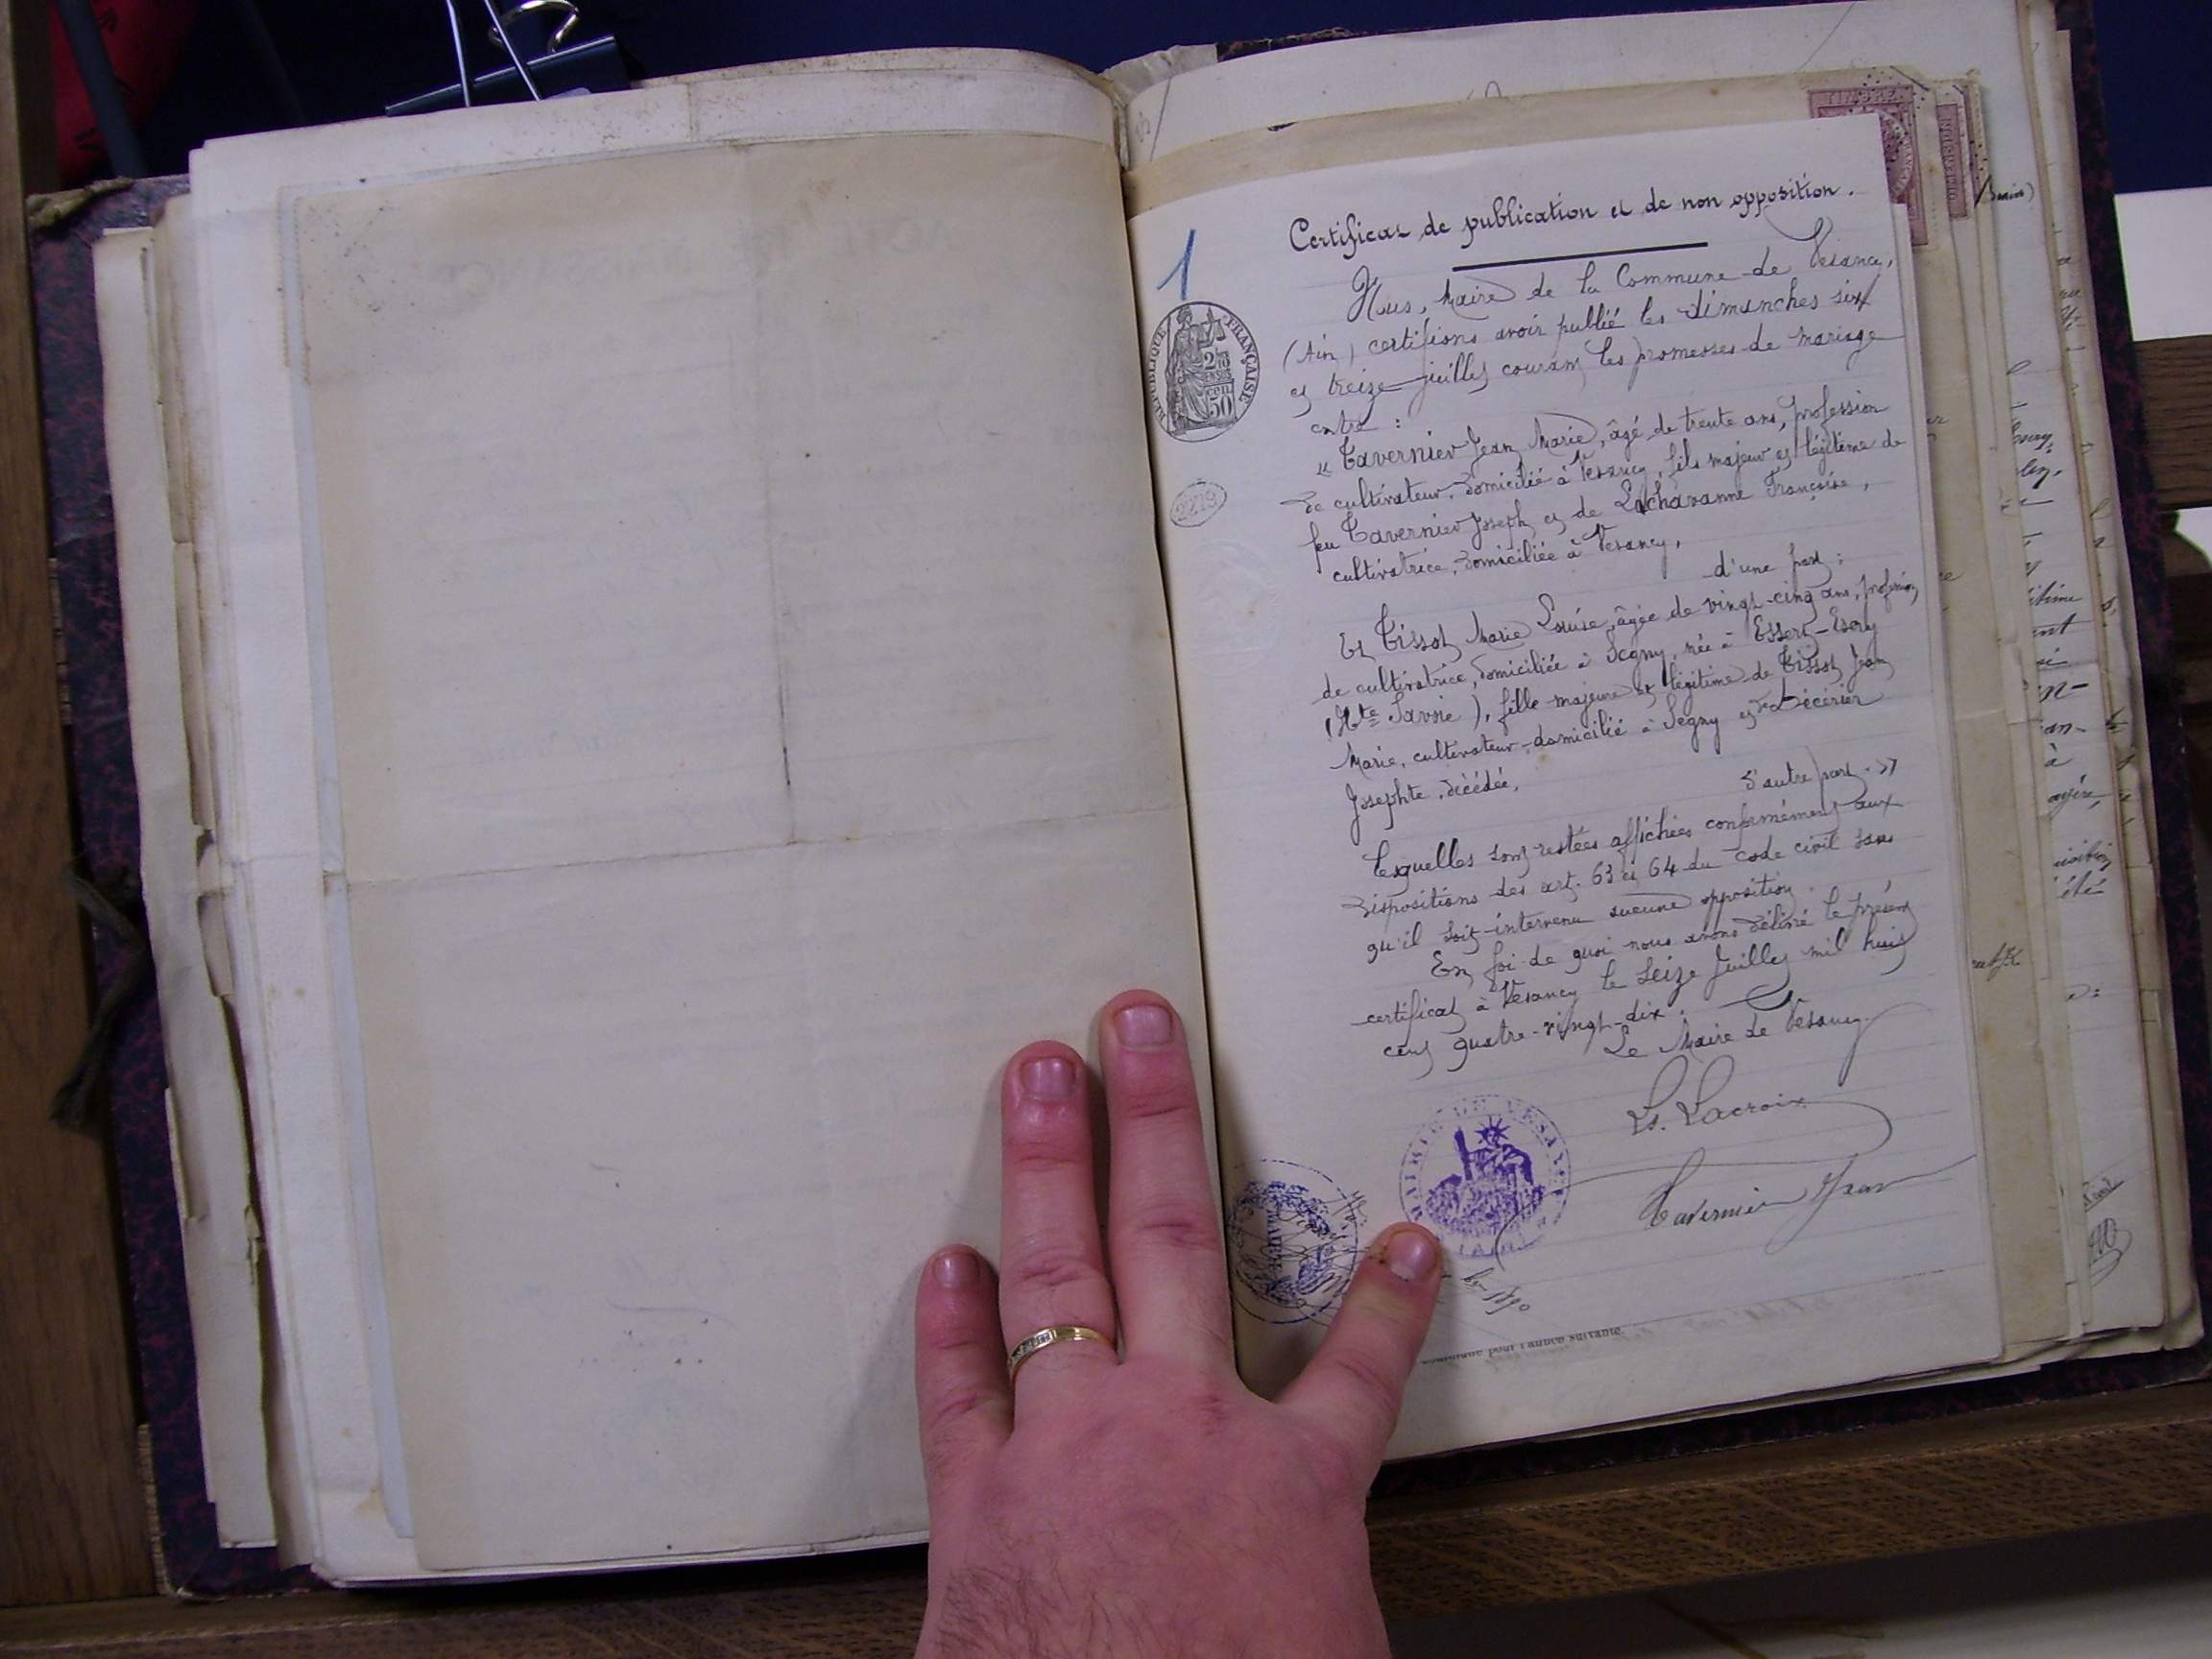 Certificat de publication et de non opposition.
1
Nous, Maire de la Commune de Vesancy,
(Ain) certifions avoir publié les dimanches six
et treize juillet courant les promesses de mariage
entre :
"Tavernier Jean Marie, âgé de trente ans, profession
de cultivateur, domicilié à Vesancy, fils majeur et légitime de
feu Tavernier Joseph et de Lachavanne Françoise,
cultivatrice, domiciliée à Vesancy,
d'une part ;
Et Tissot Marie Louise, âgée de vingt-cinq ans, profession
de cultivatrice, domiciliée à Segny, née à Essert-Esery
(Hte Savoie), fille majeure et légitime de Tissot Jean
Marie, cultivateur domicilié à Segny et de Décérier
Josephte, décédée,
d'autre part."
Lesquelles sont restées affichées conformément aux
dispositions des art. 63 et 64 du code civil sans
qu'il soit intervenu aucune opposition.
En foi de quoi nous avons délivré le présent
certificat à Vesancy le seize Juillet mil huit
cent quatre-vingt-dix.
Le Maire de Vesancy
Ls. Lacroix
Tavernier Jean
RÉPUBLIQUE FRANÇAISE
2/10 EN SUS
50 cen
2219
MAIRIE DE VESANCY
(AIN)
TIMBRE
DIMENSION
pour l'année suivante